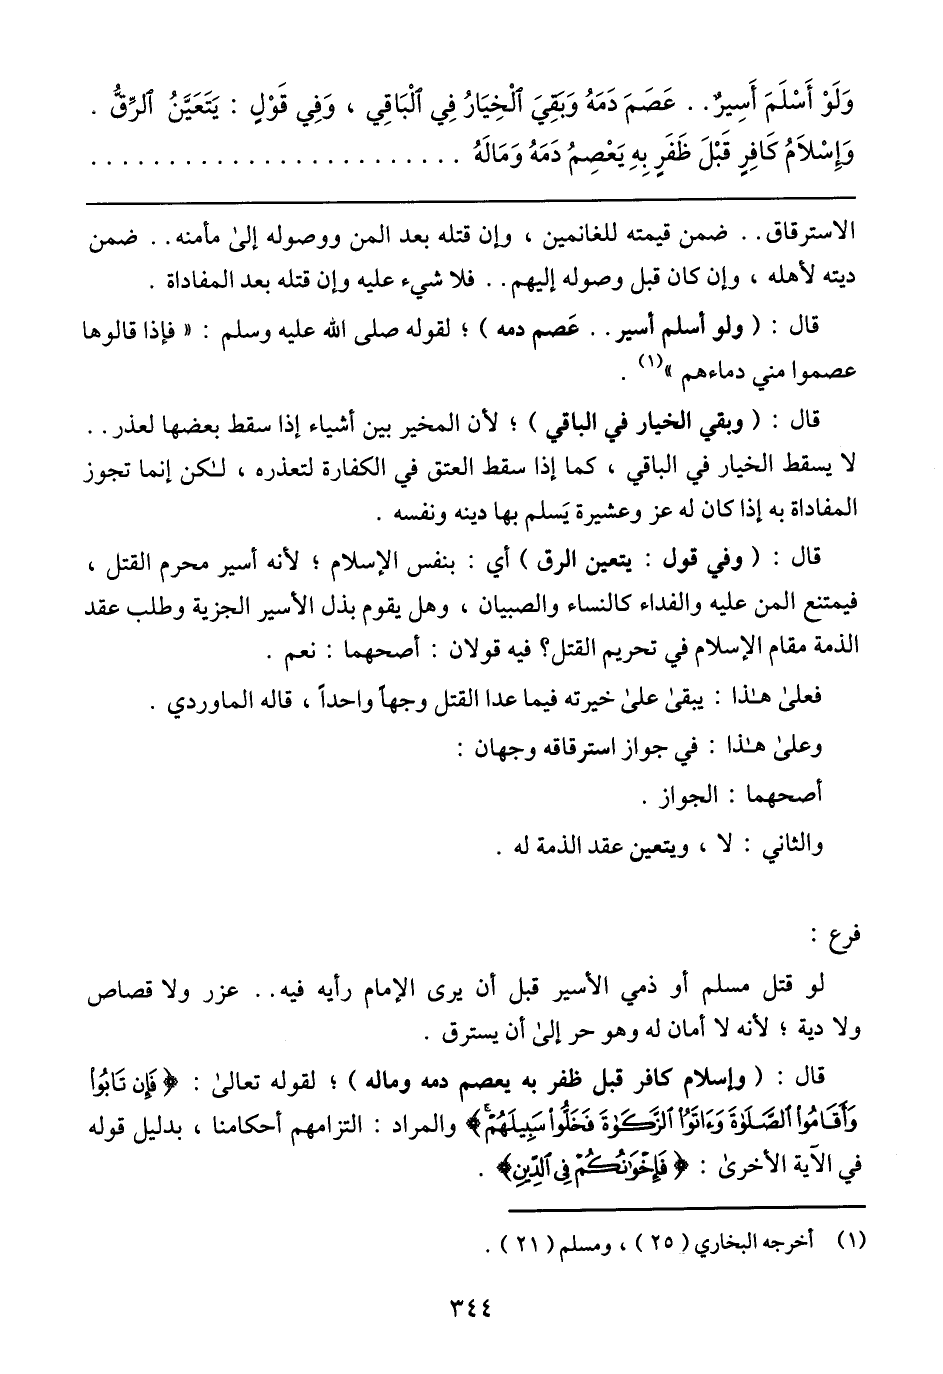 وَلَوْ أَسْلَمَ أَسِيرٌ.. عَصَمَ دَمَهُ وَبَقِيَ ٱلْخِيَارُ فِي ٱلْبَاقِي ، وَفِي قَوْلٍ : يَتَعَيَّنُ ٱلرِّقُّ .
وَإِسْلاَمُ كَافِرٍ قَبْلَ ظَفَرٍ بِهِ يَعْصِمُ دَمَهُ وَمَالَهُ . . . . . . . . . . . . . . . . . . . . . . . .
الاسترقاق.. ضمن قيمته للغانمين ، وإن قتله بعد المن ووصوله إلىٰ مأمنه.. ضمن
ديته لأهله ، وإن كان قبل وصوله إليهم.. فلا شيء عليه وإن قتله بعد المفاداة .
قال : ( ولو أسلم أسير.. عَصم دمه ) ؛ لقوله صلى الله عليه وسلم : « فإذا قالوها
عصموا مني دماءهم »(١) .
قال : ( وبقي الخيار في الباقي ) ؛ لأن المخير بين أشياء إذا سقط بعضها لعذر..
لا يسقط الخيار في الباقي ، كما إذا سقط العتق في الكفارة لتعذره ، لـٰكن إنما تجوز
المفاداة به إذا كان له عز وعشيرة يَسلم بها دينه ونفسه .
قال : ( وفي قول : يتعين الرق ) أي : بنفس الإسلام ؛ لأنه أسير محرم القتل ،
فيمتنع المن عليه والفداء كالنساء والصبيان ، وهل يقوم بذل الأسير الجزية وطلب عقد
الذمة مقام الإسلام في تحريم القتل؟ فيه قولان : أصحهما : نعم .
فعلىٰ هـٰذا : يبقىٰ علىٰ خيرته فيما عدا القتل وجهاً واحداً ، قاله الماوردي .
وعلىٰ هـٰذا : في جواز استرقاقه وجهان :
أصحهما : الجواز .
والثاني : لا ، ويتعين عقد الذمة له .
فرع :
لو قتل مسلم أو ذمي الأسير قبل أن يرى الإمام رأيه فيه.. عزر ولا قصاص
ولا دية ؛ لأنه لا أمان له وهو حر إلىٰ أن يسترق .
قال : ( وإسلام كافر قبل ظفر به يعصم دمه وماله ) ؛ لقوله تعالىٰ : ﴿ فَإِن تَابُواْ
وَأَقَامُواْ ٱلصَّلَوٰةَ وَءَاتَوُاْ ٱلزَّكَوٰةَ فَخَلُّواْ سَبِيلَهُمْۚ﴾ والمراد : التزامهم أحكامنا ، بدليل قوله
في الآية الأخرىٰ : ﴿ فَإِخْوَٰنُكُمْ فِى ٱلدِّينِ﴾ .
(١) أخرجه البخاري ( ٢٥ ) ، ومسلم ( ٢١ ) .
٣٤٤